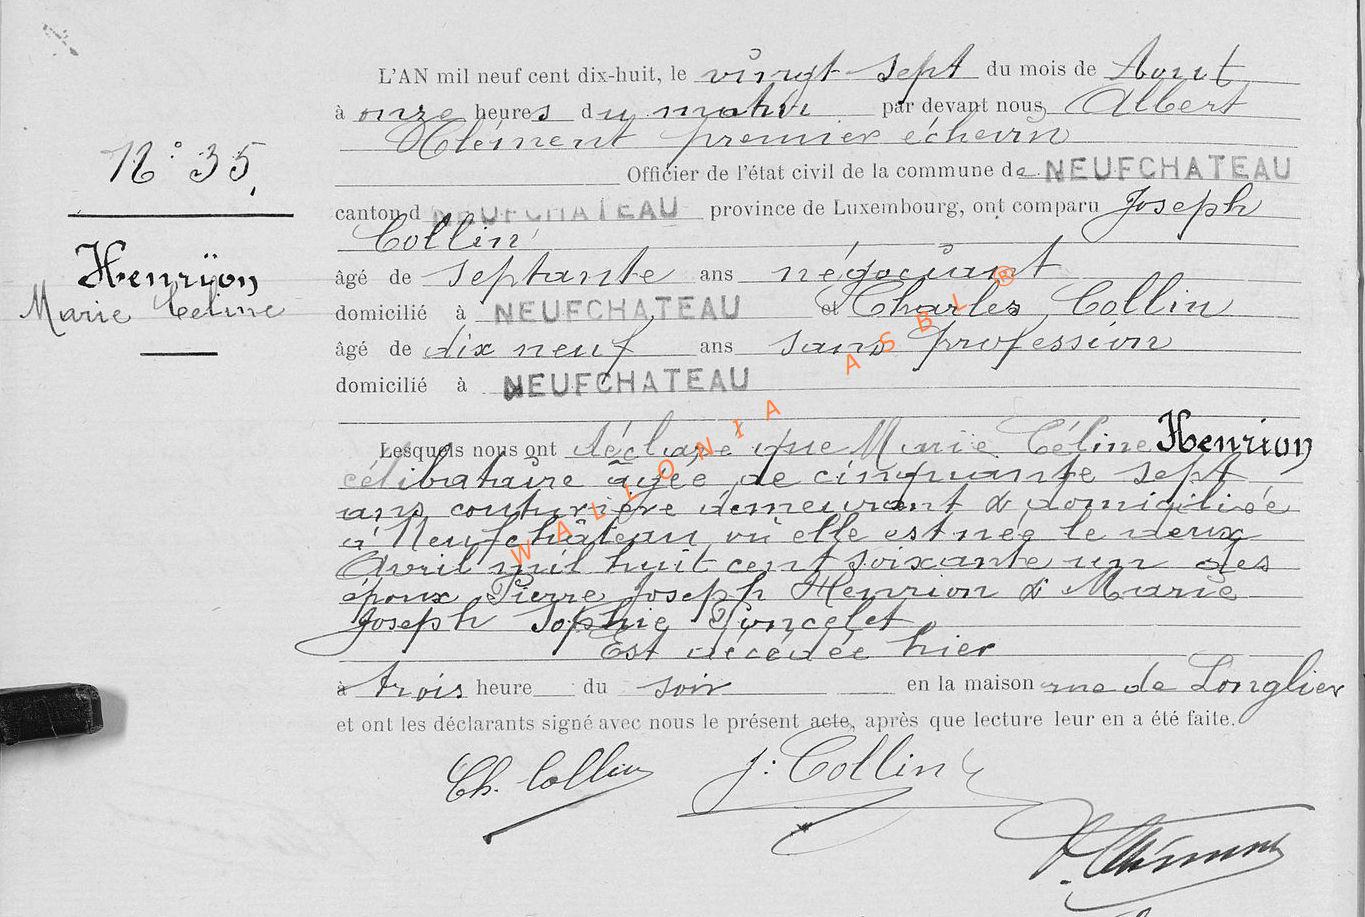 L'AN mil neuf cent dix-huit, le vingt-sept du mois de Aout
à onze heures du matin par devant nous, Albert
Clément premier échevin
Officier de l'état civil de la commune de NEUFCHATEAU
canton d NEUFCHATEAU province de Luxembourg, ont comparu Joseph
Collin
âgé de septante ans négociant
domicilié à NEUFCHATEAU et Charles Collin
âgé de dix neuf ans sans profession
domicilié à NEUFCHATEAU
Lesquels nous ont déclaré que Marie Céline Henrion
célibataire âgée de cinquante sept
ans couturière demeurant & domiciliée
à Neufchâteau où elle est née le deux
Avril mil huit cent soixante un des
époux Pierre Joseph Henrion & Marie
Joseph Sophie Poncelet
Est décédée hier
à trois heure du soir en la maison rue de Longlier
et ont les déclarants signé avec nous le présent acte, après que lecture leur en a été faite.
Ch. Collin J. Collin
N° 35.
Henrion
Marie Céline
WALLONIA ASBL ®